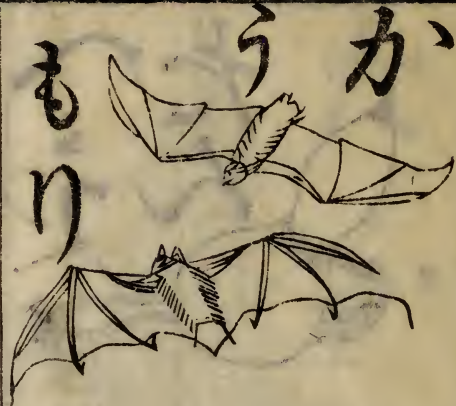 か
う
もり